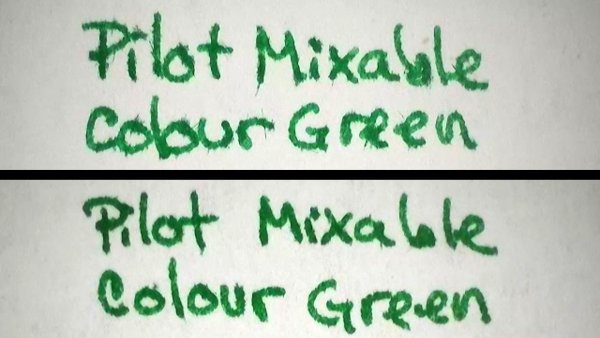 Pilot Mixable
Colour Green
Pilot Mixable
Colour Green